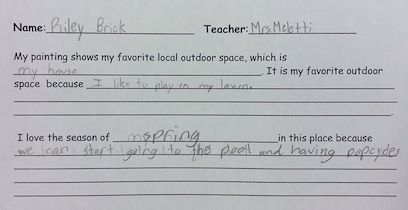 Name: Riley Brick Teacher: Mrs. Meletti
My painting shows my favorite local outdoor space, which is
my house. It is my favorite outdoor
space because I like to play on my lawn.
I love the season of spring in this place because
we can start going to the pool and having popcycles